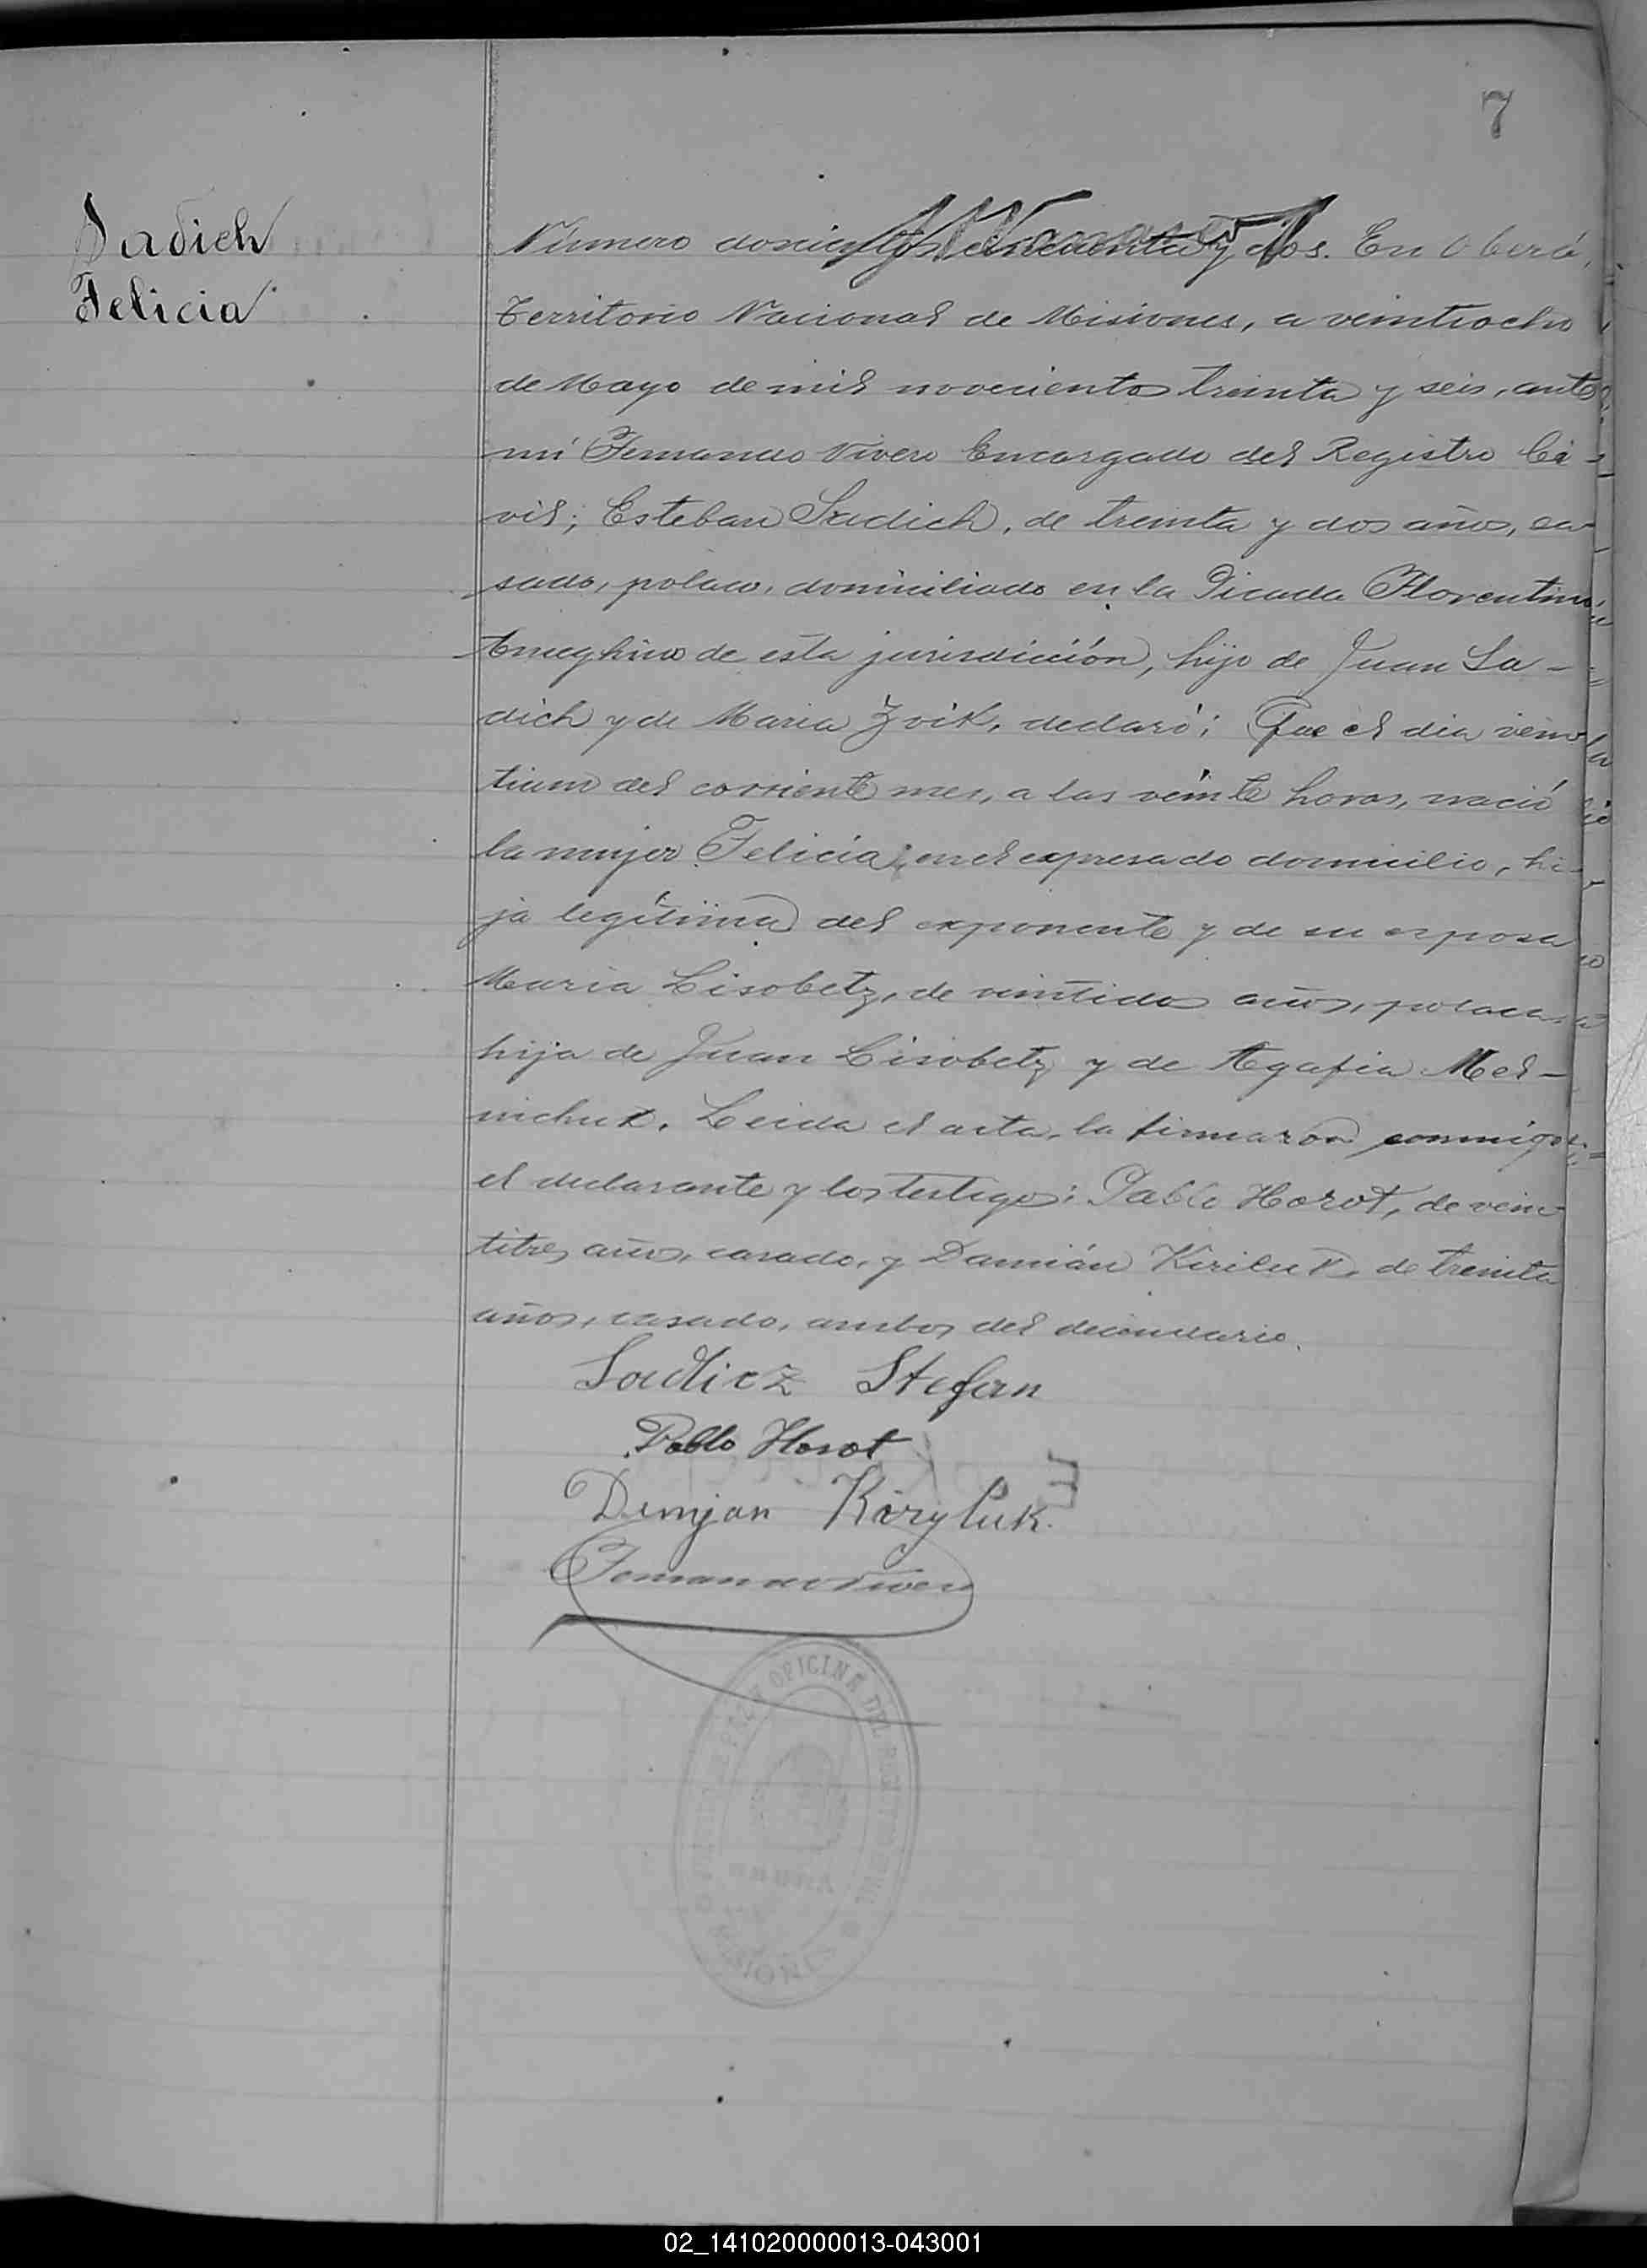 7
Sadich
Felicia
Número doscientos cincuenta y dos. En Oberá,
Territorio Nacional de Misiones, a veintiocho
de Mayo de mil novecientos treinta y seis, ante
mí Fernando Vivero Encargado del Registro Ci-
vil; Esteban Sadich, de treinta y dos años, ca-
sado, polaco, domiciliado en la Picada Florentino
Ameghino de esta jurisdicción, hijo de Juan Sa-
dich y de Maria Zvik, declaró; Que el dia vein-
tiuno del corriente mes, a las veinte horas, nació
la mujer Felicia, en el expresado domicilio, hi-
ja legítima del exponente y de su esposa
Maria Lisobetz, de veintidos años, polaca,
hija de Juan Lisobetz y de Agafia Mel-
nichuk. Leida el acta, la firmaron conmigo
el declarante y los testigos: Pablo Horot, de vein-
titres años, casado, y Damián Kiriluk, de treinta
años, casado, ambos del vecindario.
Sadicz Stefan
Pablo Horot
Demjan Kiryluk
Fernando Vivero
OFICINA DEL REGISTRO CIVIL
MISIONES
02_141020000013-043001